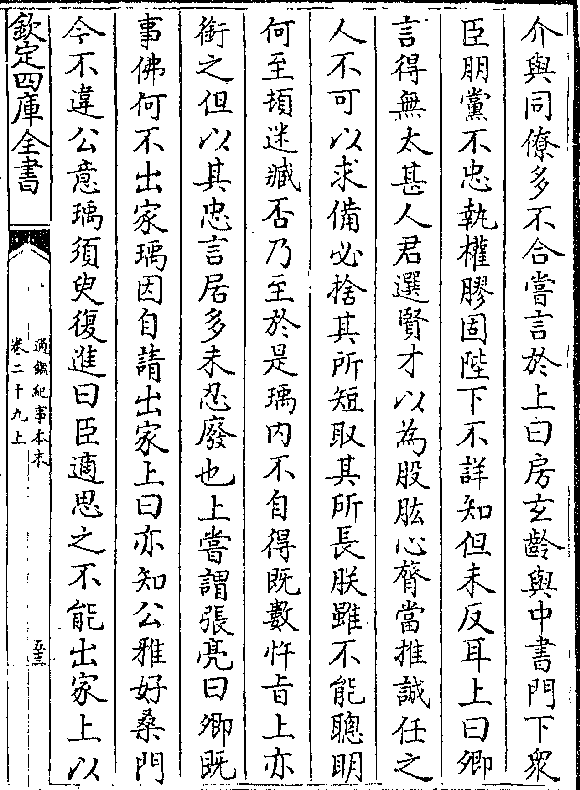 介與同僚多不合嘗言於上曰房玄齡與中書門下衆
臣朋黨不忠執權膠固陛下不詳知但未反耳上曰卿
言得無太甚人君選賢才以為股肱心膂當推誠任之
人不可以求備必捨其所短取其所長朕雖不能聰明
何至頓迷臧否乃至於是瑀内不自得既數忤㫖上亦
銜之但以其忠言居多未忍廢也上嘗謂張亮曰卿既
事佛何不出家瑀因自請出家上曰亦知公雅好桑門
今不違公意瑀須臾復進曰臣適思之不能出家上以
欽定四庫全書
通鑑紀事本末
卷二十九上
至三